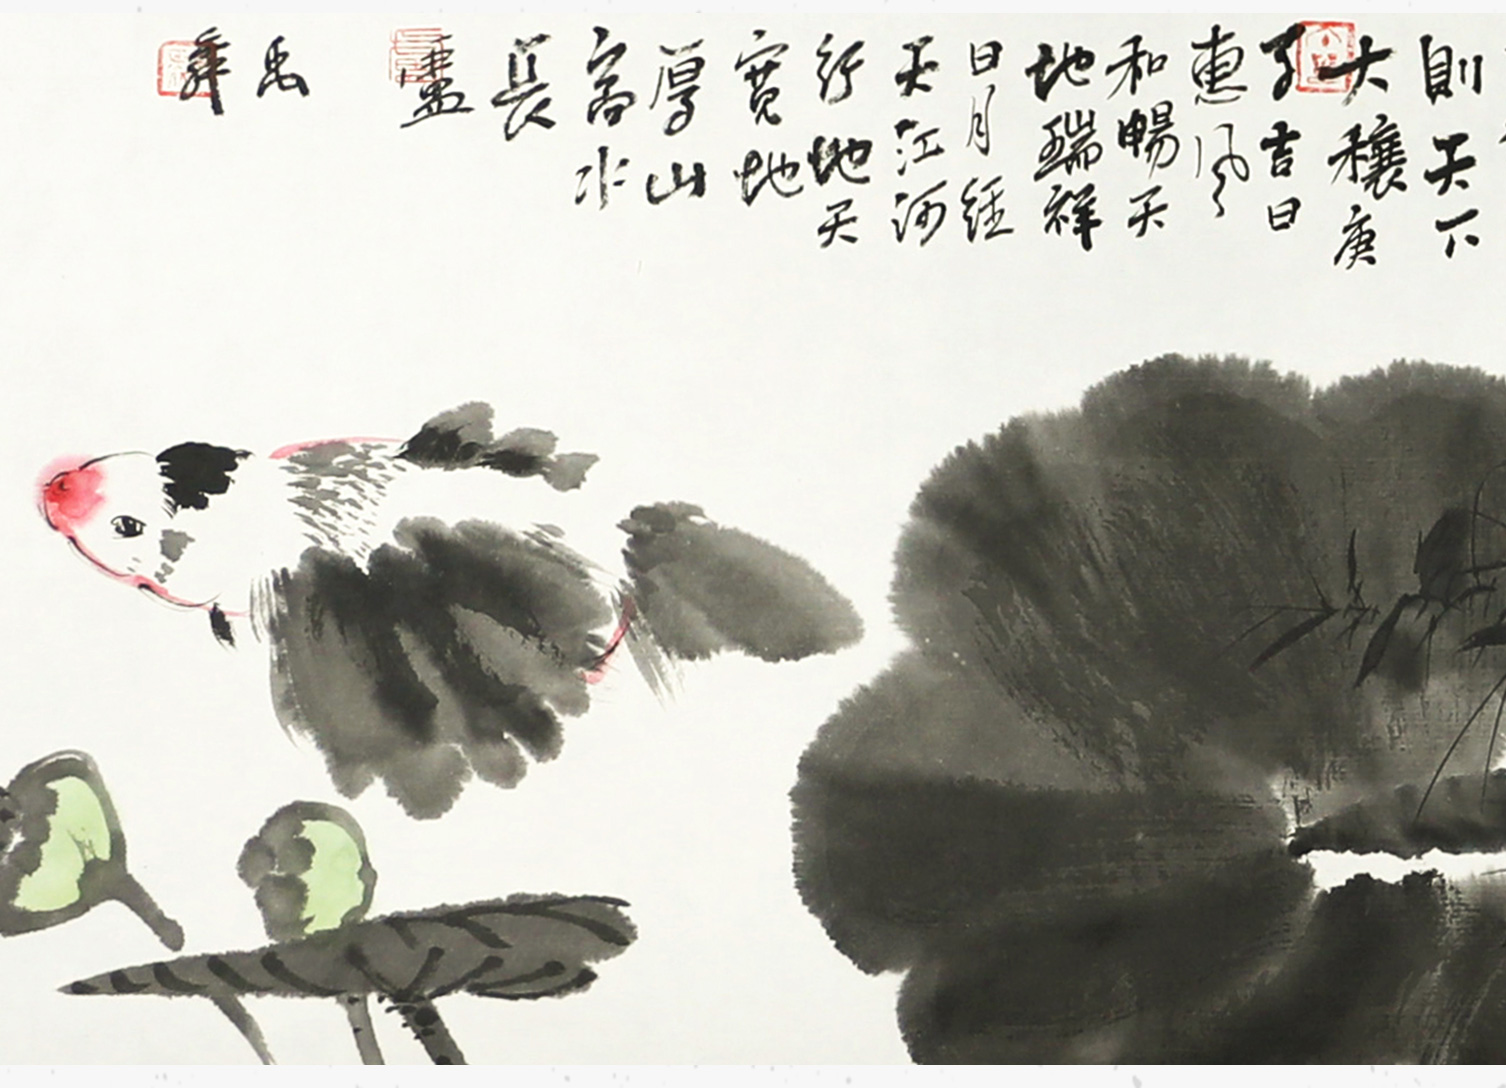 則天下
大穰庚
子吉日
惠风
和暢天
地瑞祥
日月經
天江河
行地天
寬地
厚山
高水
長
禹
舜